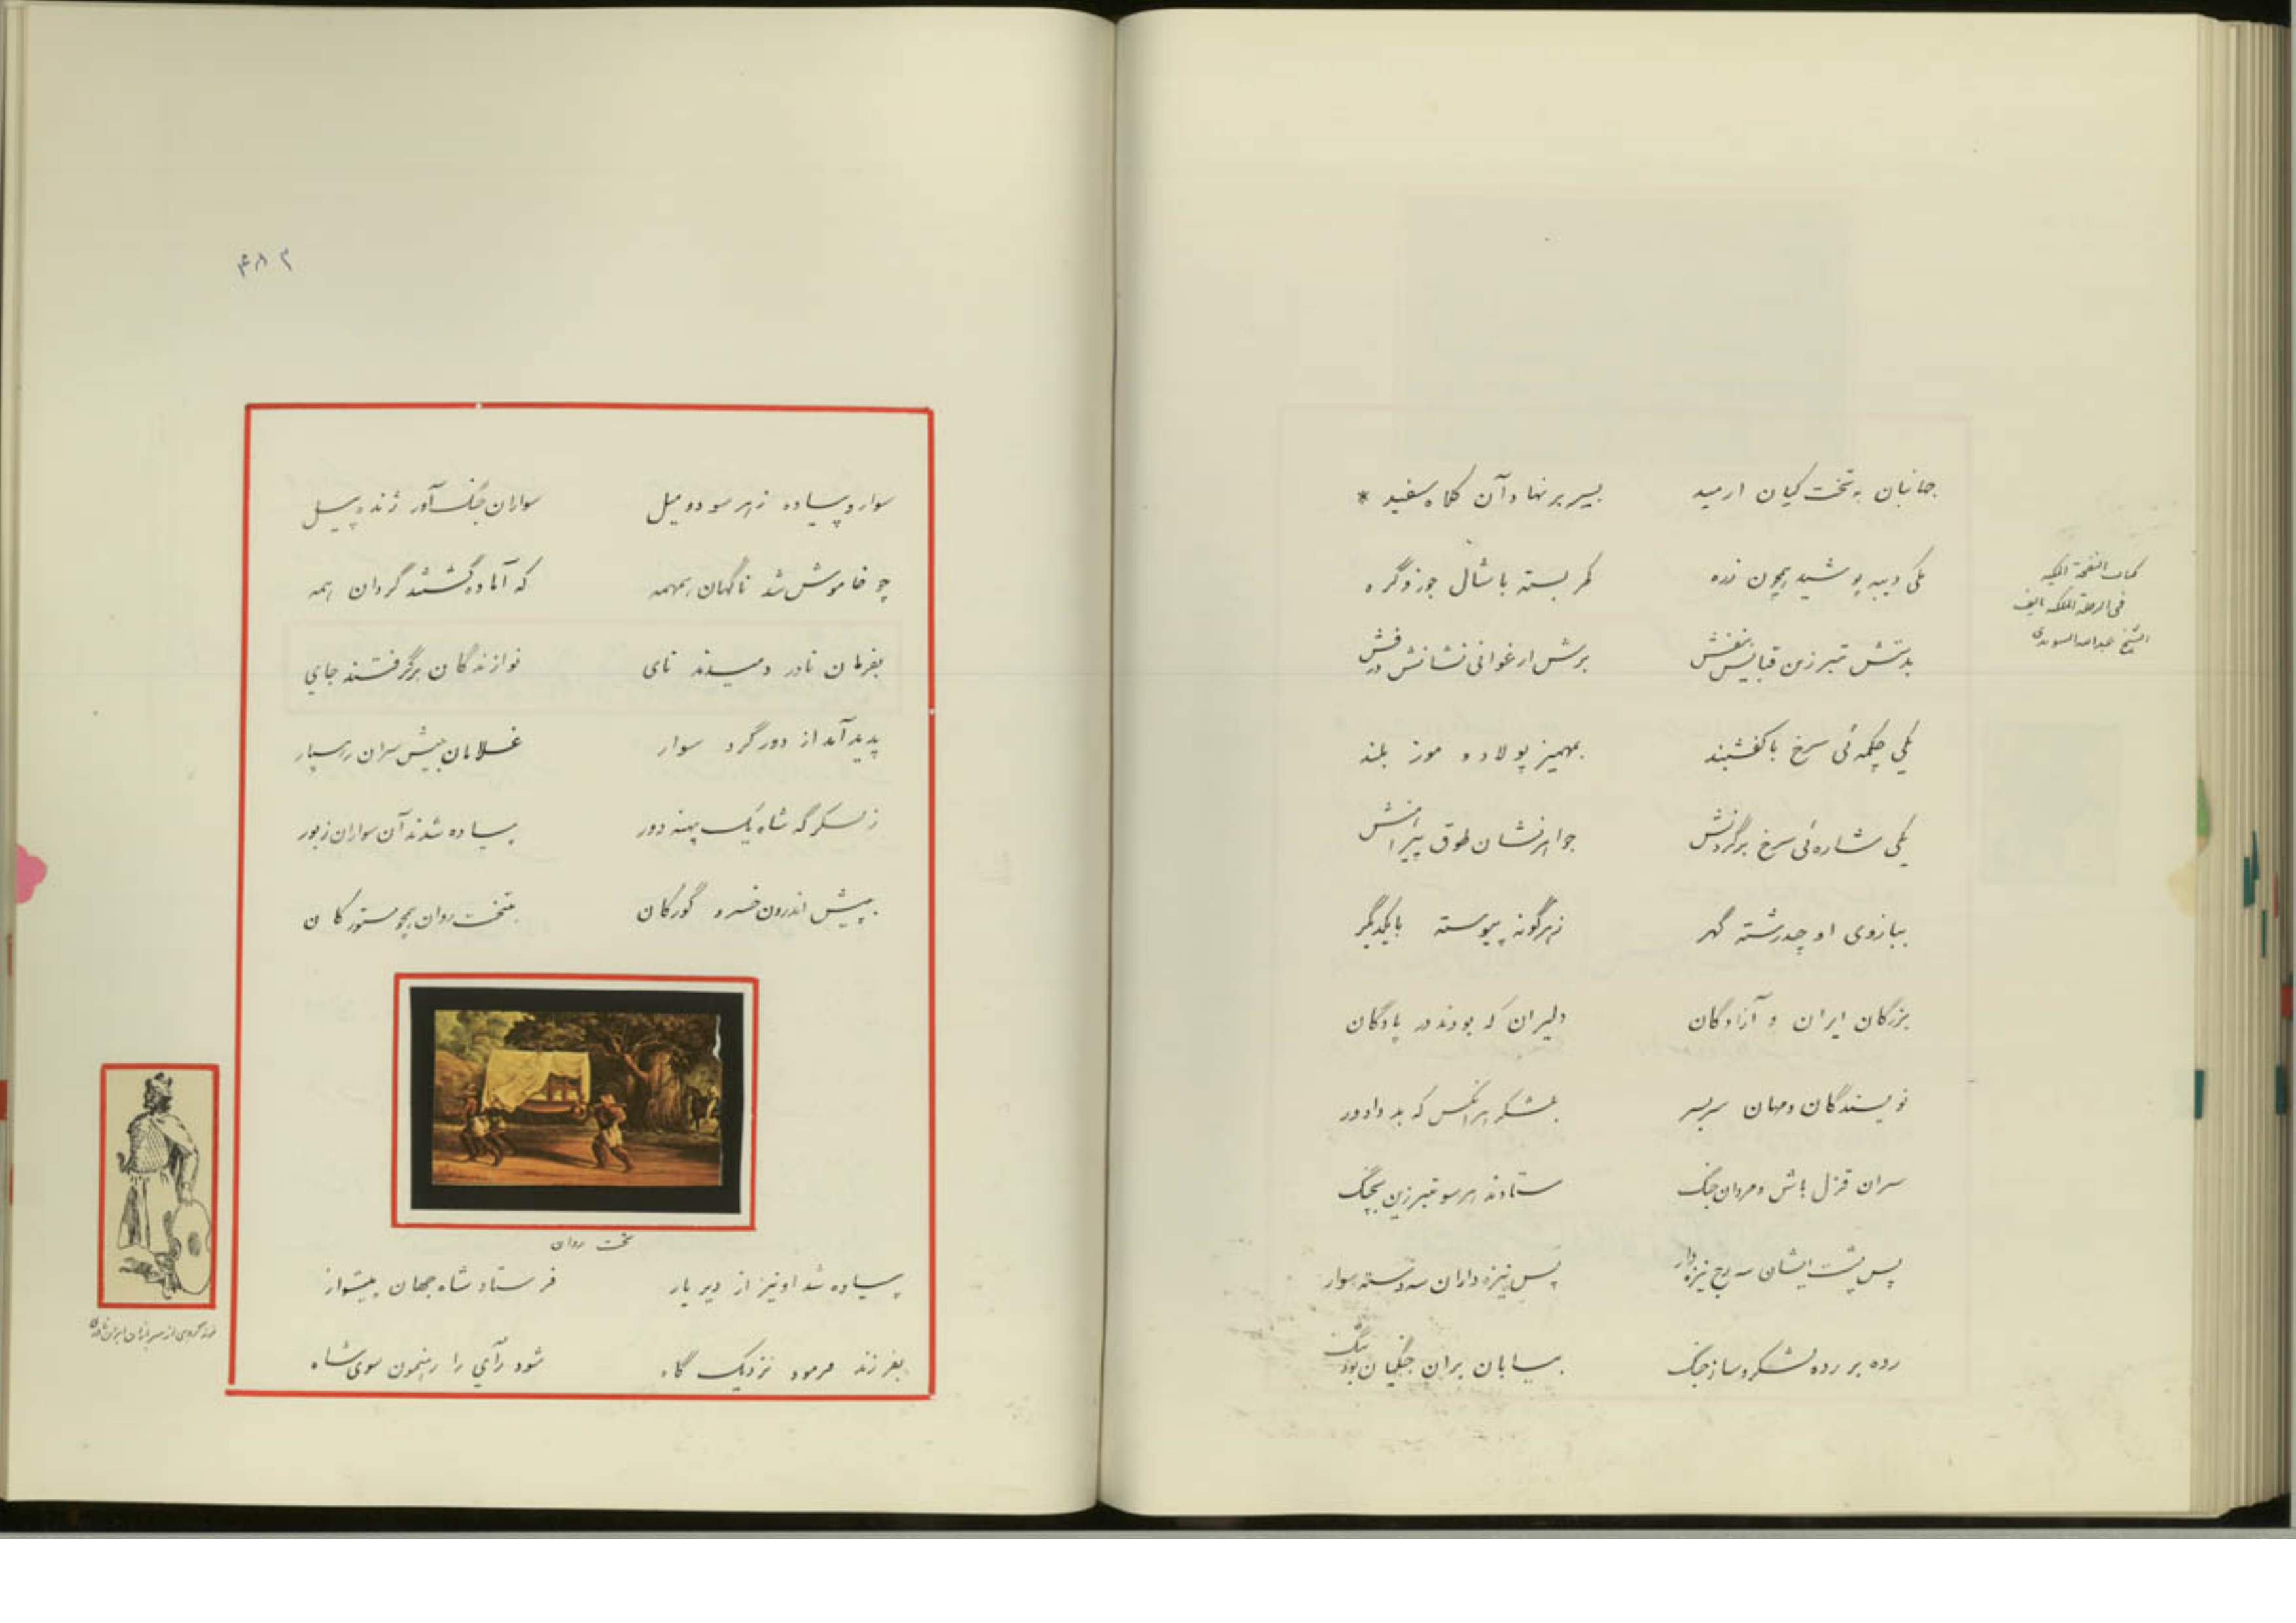 جهانبان به تخت کیان ارمید بسر بر نهاد آن کلاه سفید *
یکی دیبه پوشید همچون زره کمر بسته با شال جوزوگره
بدستش تبرزین قبایش بنفش برش ارغوانی نشانش درفش
یکی چکمه‌ئی سرخ با کفشبند بمهمیز پولاد و موزز بلند
یکی شاره‌ئی سرخ برگردنش جواهرنشان طوق پیرامنش
ببازوی او چند رشته گهر زهرگونه پیوسته بایکدیگر
بزرگان ایران و آزادگان دلیران که بودند در پادگان
نویسندگان و مهان سربسر بلشکر هرانکس که بد دادور
سران قزل باش و مردان جنگ ستادند هر سو تبرزین بچنگ
پس پشت ایشان سه رج نیزه‌دار پس نیزه داران سه دسته سوار
رده بر رده لشکر و ساز جنگ بیابان بران جنگیان بود تنگ
کتاب النفحة المکیه
فی الرحلة المکیه تالیف
الشیخ عبدالله السویدی
۴۸۲
سوار و پیاده زهر سو دو میل سواران جنگ آور ژنده پیل
چو خاموش شد ناگهان همهمه که آماده گشتند گردان همه
بفرمان نادر دمیدند نای نوازندگان برگرفتند جای
پدید آمد از دور گرد سوار غلامان بپیش سران رهسپار
ز لسکرگه شاه یک پهنه دور پیاده شدند آن سواران زبور
بپیش اندرون خسرو گورکان بتخت روان همچو ستورکان
تخت روان
پیاده شد او نیز از دیر یاز فرستاد شاه جهان پیشواز
بفرزند فرمود نزدیک گاه شود رآی را رهنمون سوی شاه